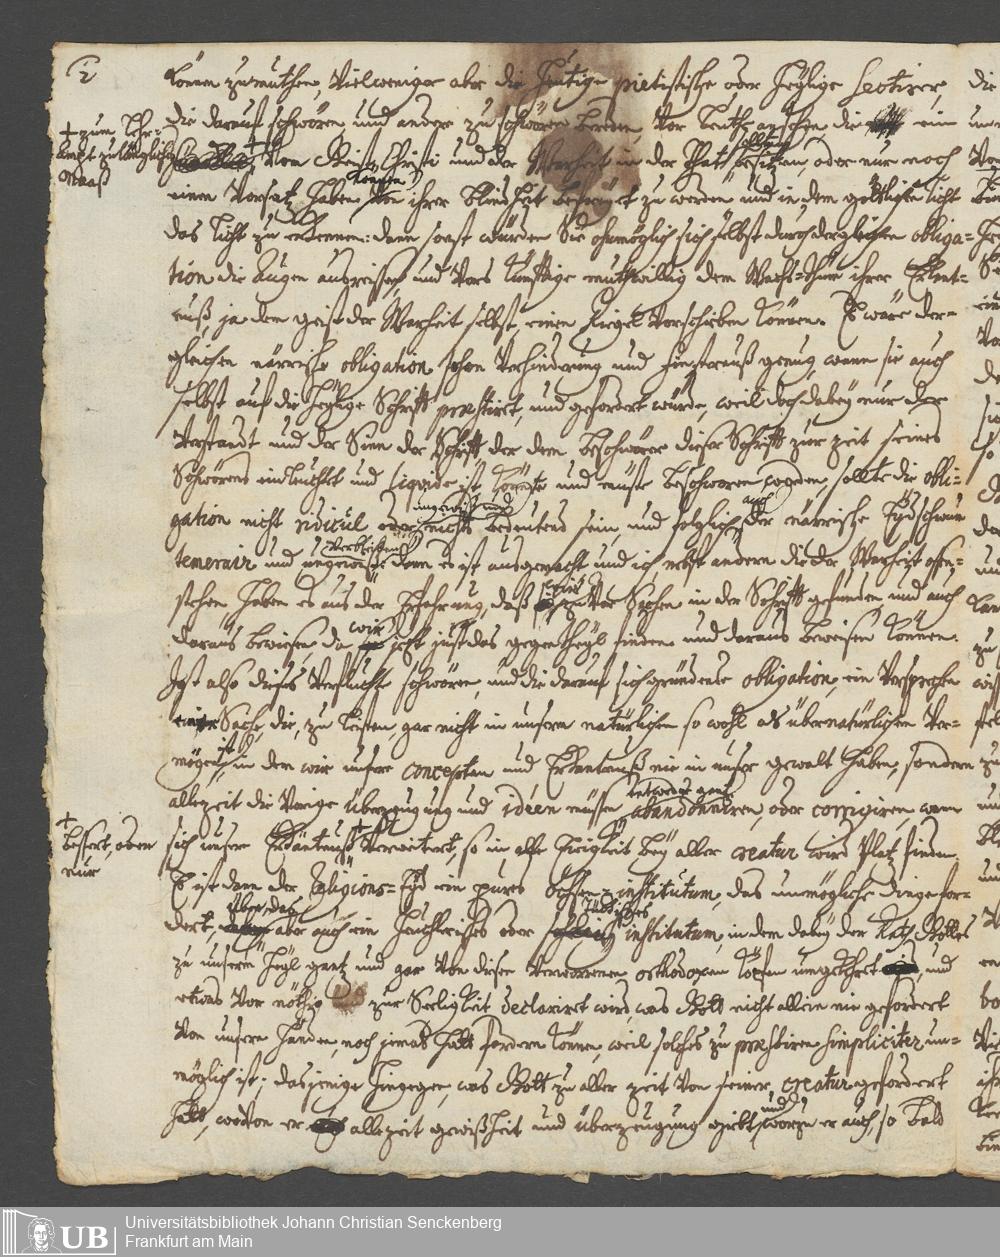 2
können zumuthen, Vielweniger aber die heutige pietistische oder heylige Sectirer,
die darauf schwören und andere zu schwören bereden, vor Leuthe ansehen die ein
+ zum Lehr=
ampt zulänglich
Maaß
von Geist Christi und der Warheit in der That besitzen, oder nur noch
einen Vorsatz haben können von ihrer Blindheit befreyet zu werden und in dem göttlichen licht
das licht zu erkennen: dann sonst würden Sie ohnmöglich sich selbst durch dergleichen obliga=
tion die Augen ausreissen, und vors künfftige muthwillig dem Wachs=thum ihrer Erkent=
nuß, ja dem geist der Warheit selbst, einen Riegel vorschieben können. Es wäre der=
gleichen närrische obligation schon Verhinderung und Finsternuß genug, wann sie auch
selbst auf die heylige Schrifft præstiret, und gefordert würde, weil doch dabey nur der
Verstandt und der Sinn der Schrifft der dem beschwörer dieser Schrifft zur zeit seines
Schwörens einleuchtet und liquide ist könte und müste beschworen werden, sollte die obli=
gation nicht ridicül oder ungewiß und nichts bedeutend sein, und folglich auch der närrische Eydschwur
temerair und ungewiß dann es ist ausgemacht und ich nebst andern die der Warheit offen=
stehen haben es aus der Erfahrung, daß wir zuvor Sachen in der Schrifft gefunden und auch
daraus bewiesen, da wir jetzt just das gegentheyl finden und daraus beweisen können.
Ist also dieses Verfluchte schwören, und die darauf sich gründende obligation, ein Versprechen
einer Sache die, zu leisten, gar nicht in unserm natürlichen so wohl als übernatürlichen Ver=
mögen ist, in dem wir unsere concepten und Erkäntnuß nie in unser gewalt haben, sondern
allezeit die Vorige überzeugung und idéen müssen entweder gantz abandonniren, oder corrigiren, wann
+
bessert, oben
nur
sich unsere Erkäntnuß + Erweitert, so in alle Ewigkeit bey aller creatur wird Platz finden.
Es ist dann der Religions=Eyd ein pures Ochsen=institutum, das unmögliche dinge for=
dert, über das aber auch ein heuchlerisches oder jüdisches institutum, in dem dabey der Rath Gottes
zu unserm heyl gantz und gar von diesen verworrenen orthodoxen köpfen umgekehret und
etwas vor nöthig zur Seeligkeit declariret wird, was Gott nicht allein nie gefordert
von unsern händen, noch jemals hatt fordern können, weil solches zu præstiren simpliciter un=
möglich ist; dasjenige hingegen, was Gott zu aller zeit von seiner creatur gefordert
hatt, wovon er allezeit gewißheit und überzeugung giebt, und worzu er auch, so bald
UB
Universitätsbibliothek Johann Christian Senckenberg
Frankfurt am Main